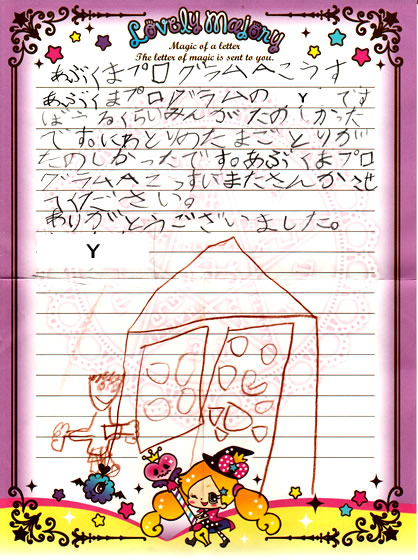 Lovely Majory
Magic of a letter
The letter of magic is sent to you.
あぶくまプログラムAこうす
あぶくまプログラムの Y です
ぼうるくらいみんがたのしかった
です。にわとりのたまごとりが
たのしかったです。あぶくまプロ
グラムAこっすいまたさんかせ
てください。
ありがとうございました。
Y